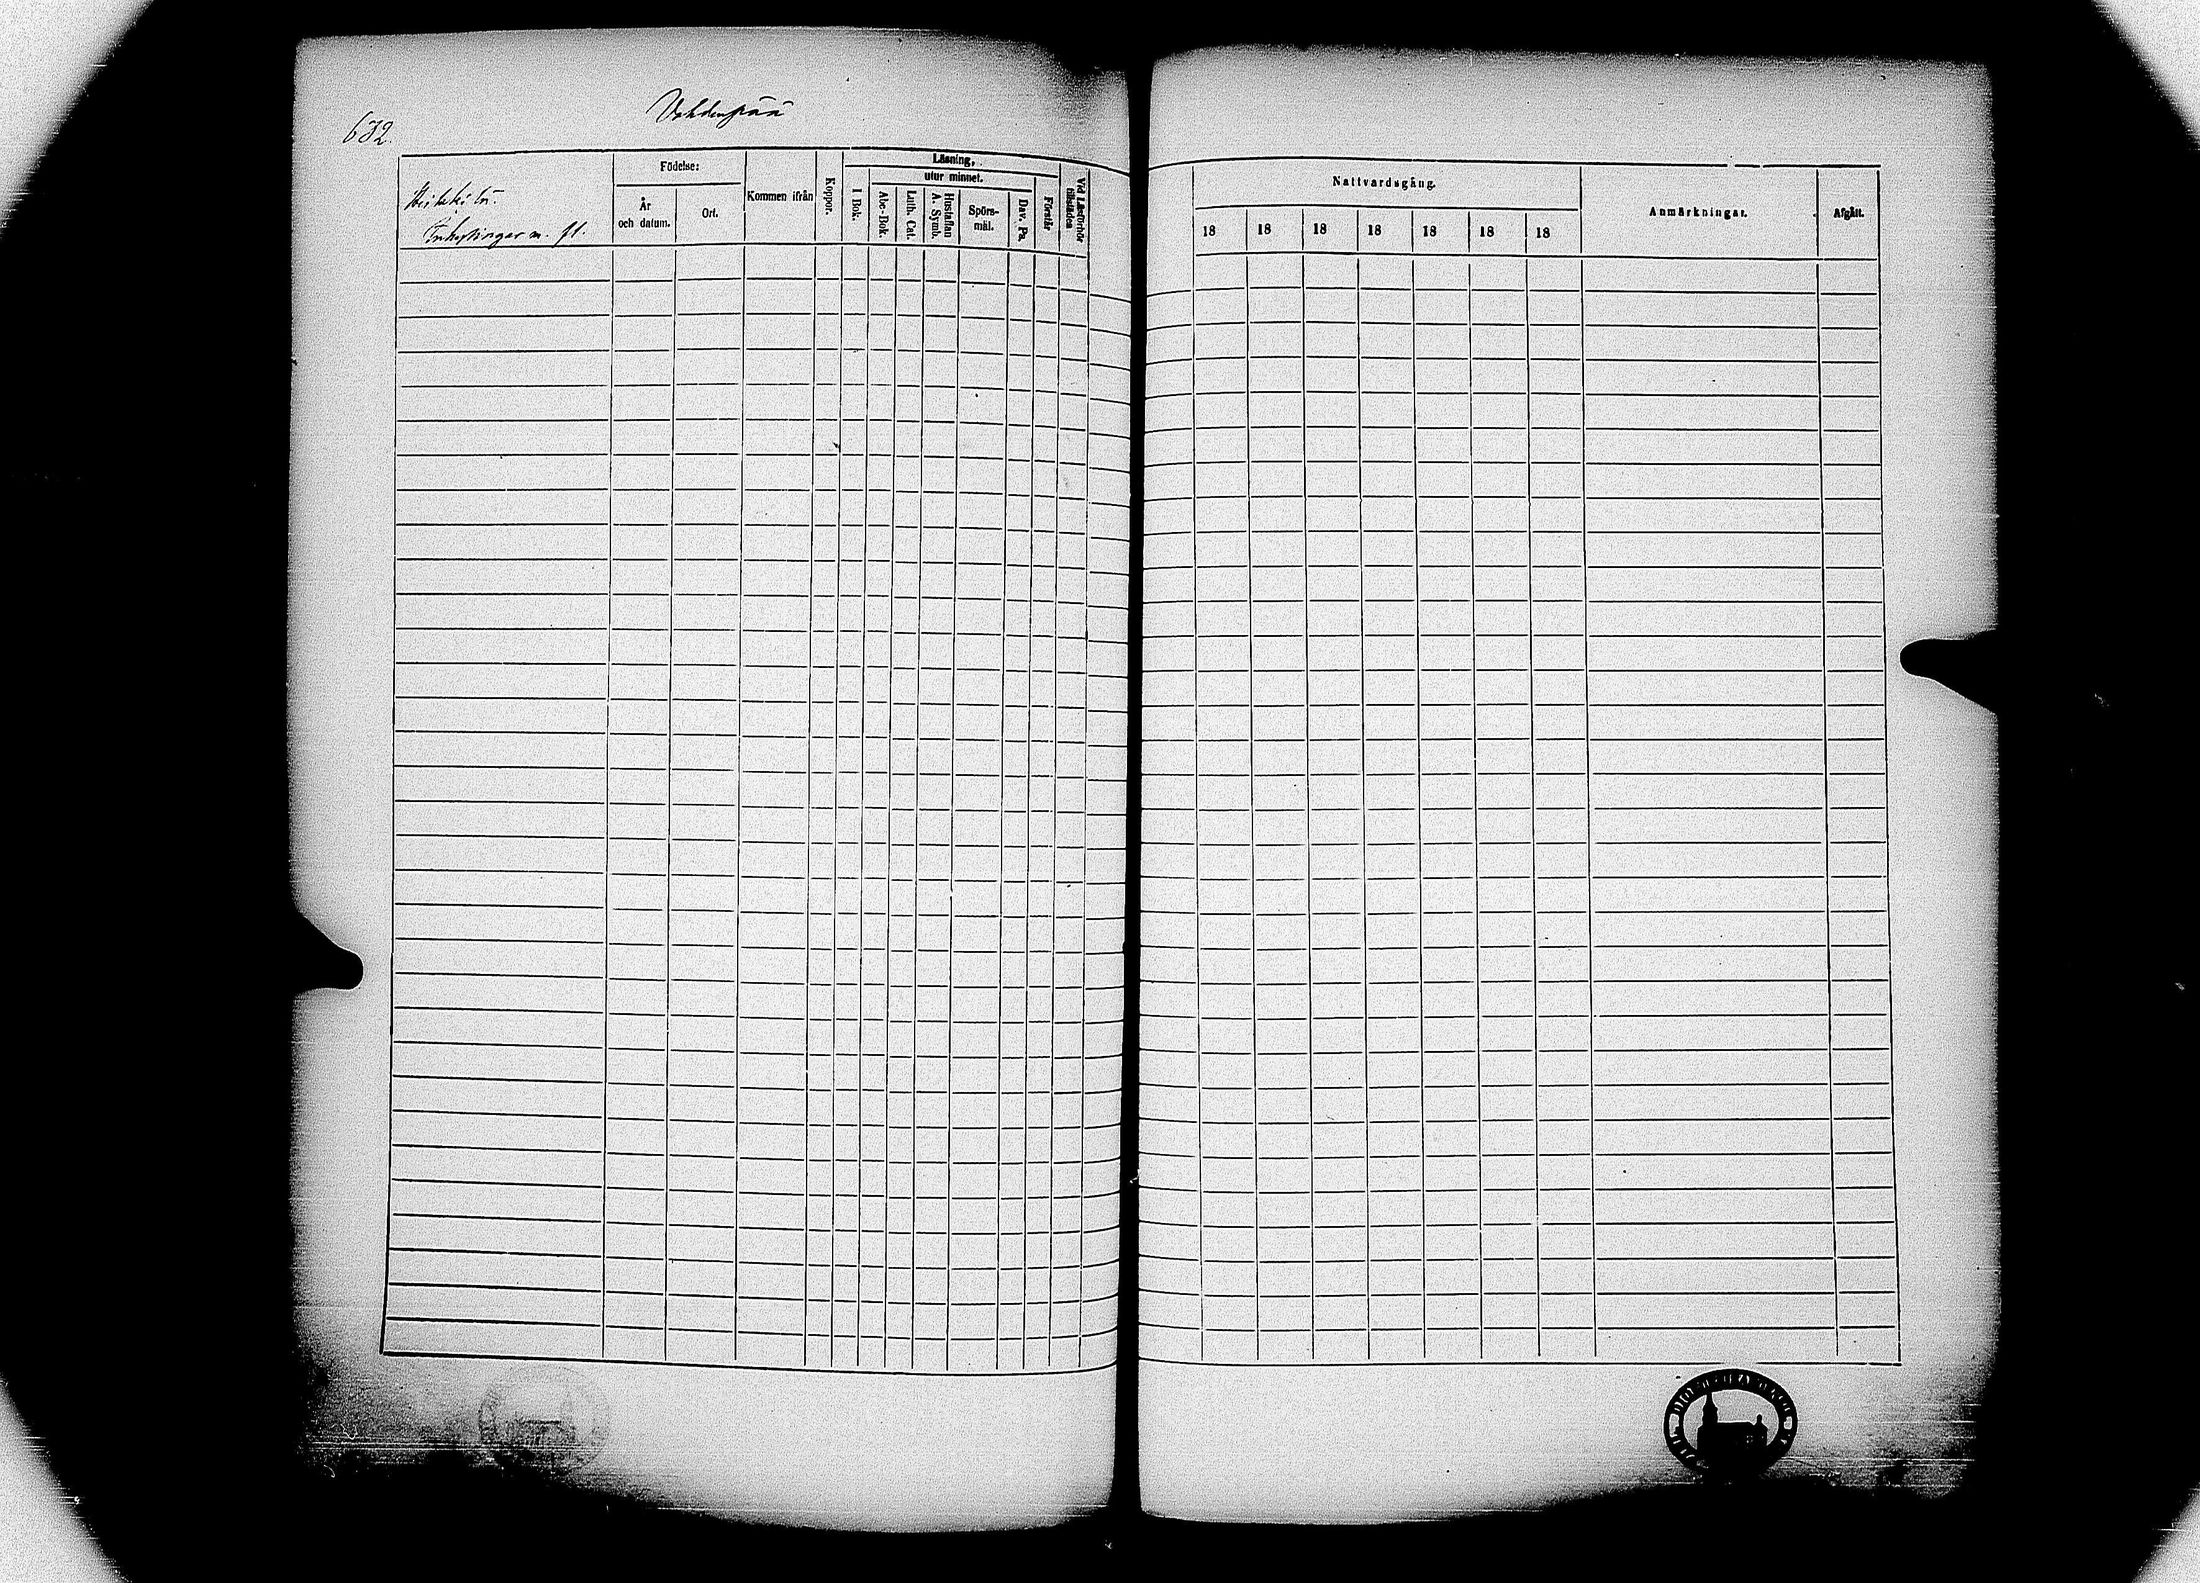 632.
Födelse:
År
och datum.
Ort.
Kommen ifrån
Koppor.
Läsning,
utur minnet.
I Bok.
Abc-Bok.
Luth. Cat.
Hustaflan
A. Symb.
Spörs-
mål.
Dav. Ps.
Förstår
Vid Läsförhör
tillstädes
m. fl.
Nattvardsgång.
18 18 18 18 18 18 18
Anmärkningar.
Afgått.